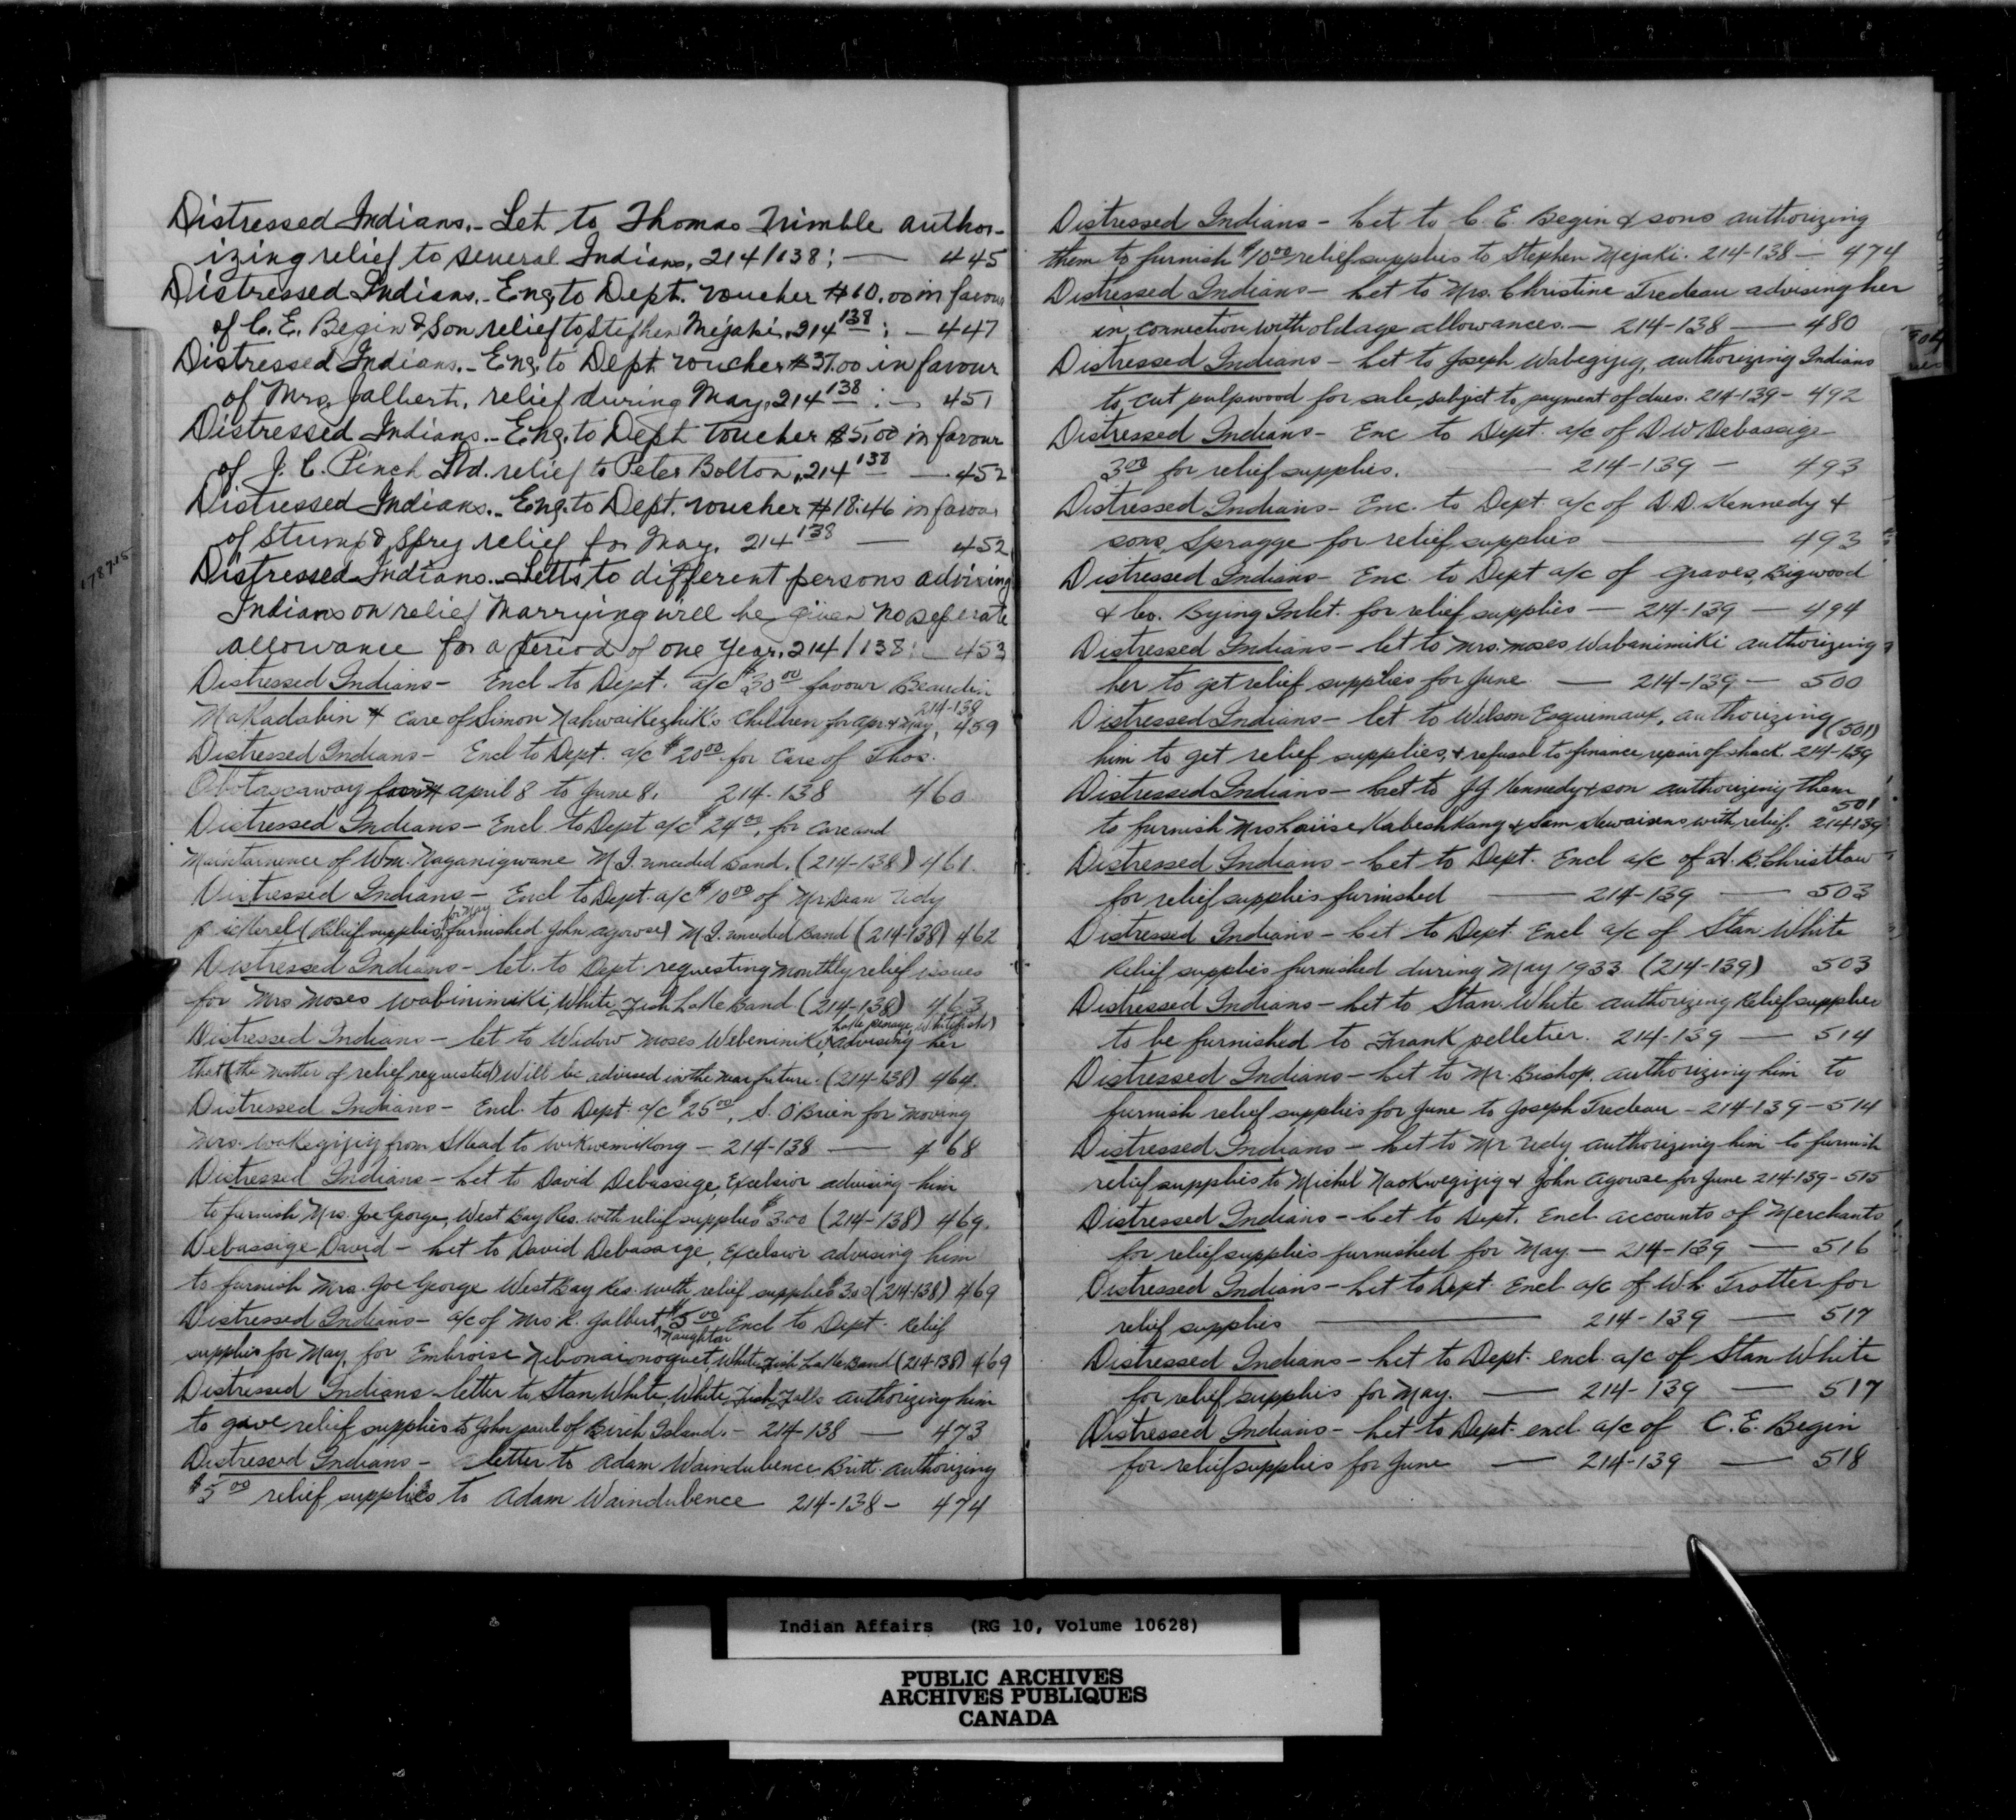 Distressed Indians.- Let to Thomas Trimble author-
izing relief to several Indians, 214/138; — 445
Distressed Indians.- Eng. to Dept. voucher #10.00 in favour
of C. E. Begin & Son relief to Stephen Mejaki, 214 138 : — 447
Distressed Indians.- Eng. to Dept voucher #37.00 in favour
of Mrs. Jalbert, relief during May, 214 138 : — 451
Distressed Indians.- Eng. to Dept Voucher $5.00 in favour
of J. C. Pinch Ltd. relief to Peter Bolton, 214 138 — 452
Distressed Indians.- Eng. to Dept. voucher #18.46 in favour
of Stump & Spry relief for May, 214 138 — 452
Distressed Indians.- Letts to different persons advising
Indians on relief Marrying will be given no seperate
allowance for a period of one year, 214/138: — 453
Distressed Indians - Encl to Dept. a/c $30 00 favour Beaudin
214-138
Makadabin & care of Simon Nahwaikezhik's children for apr. & May, 459
Distressed Indians - Encl to Dept. a/c $20 00 for Care of Thos.
Obotassaway april 8 to June 8. 214-138 460
Distressed Indians - Encl. to Dept a/c $24 00, for care and
Maintainence of Wm. Naganigwane M.I. unceded band. (214-138) 461.
Distressed Indians - Encl to Dept. a/c $10 00 of Mr Dean Udy
for May
pickerel (Relief supplies furnished John agowse) M.I. unceded Band (214-138) 462
Distressed Indians - let. to Dept. requesting monthly relief issues
for Mrs Moses Wabinimiki, White Fish Lake Band (214-138) 463
Lake Penage, Whitefish)
Distressed Indians - let to Widow Moses Webeninike, advising her
that (the matter of relief requested) will be advised in the near future. (214-138) 464.
Distressed Indians - Encl. to Dept. a/c $25 00, S. O'Brien for moving
Mrs. Wakegijig from Skead to Wikwemikong - 214-138 — 468
Distressed Indians - Let to David Debassige, Excelsior advising him
to furnish Mrs. Joe George, West Bay Res. with relief supplies $3.00 (214-138) 469.
Debassige David - Let to David Debassige, Excelsior advising him
to furnish Mrs. Joe George West Bay Res. with relief supplies 3.00 (214-138) 469
Distressed Indians - a/c of Mrs R. Jalbert $5 00 Encl to Dept. Relief
Naughton
supplies for May, for Embroise Nebonaionoquet, White Fish Lake Band (214-138) 469
Distressed Indians - letter to Stan White, White Fish Falls authorizing him
to gave relief supplies to John paul of Birch Island. - 214-138 — 473
Distressed Indians - letter to Adam Waindubence Britt. authorizing
$5 00 relief supplies to Adam Waindubence 214-138 - 474
Distressed Indians - Let to C. E. Begin & sons authorizing
them to furnish $10 00 relief supplies to Stephen Mejaki. 214-138 — 474
Distressed Indians - Let to Mrs. Christine Tredeau advising her
in connection with old age allowances. — 214-138 — 480
Distressed Indians - Let to Joseph Wabegijig, authorizing Indians
to cut pulpwood for sale, subject to payment of dues. 214-139 - 492
Distressed Indians - Enc to Dept. a/c of D W Debassige
3 00 for relief supplies. 214-139 - 493
Distressed Indians - Enc. to Dept. a/c of D. D. Kennedy &
sons, Spragge for relief supplies — 493
Distressed Indians - Enc. to Dept a/c of Graves, Bigwood
& Co. Bying Inlet. for relief supplies — 214-139 — 494
Distressed Indians - let to Mrs. Moses Wabanimiki authorizing
her to get relief supplies for June. — 214-139 — 500
Distressed Indians - let to Wilson Esquimaux, authorizing (501)
him to get relief supplies, & refusal to finance repair of shack. 214-139
Distressed Indians - Let to J J Kennedy & son authorizing them
501
to furnish Mrs Louise Kabeshkang & Sam Kewaisens with relief. 214139
Distressed Indians - Let to Dept. Encl a/c of H. R. Christlaw
for relief supplies furnished — 214-139 — 503
Distressed Indians - Let to Dept Encl a/c of Stan White
Relief supplies furnished during May 1933. (214-139) 503
Distressed Indians - Let to Stan White authorizing Relief supplies
to be furnished to Frank pelletier. 214-139 — 514
Distressed Indians - Let to Mr. Bishop. authorizing him to
furnish relief supplies for June to Joseph Tredeau - 214-139 - 514
Distressed Indians - Let to Mr Udy authorizing him to furnish
relief supplies to Michel Naokwegijig & John Agowse for June 214-139 - 515
Distressed Indians - Let to Dept. Encl. accounts of Merchants
for relief supplies furnished for May — 214-139 — 516
Distressed Indians - Let to Dept. Encl a/c of W.L. Trotter for
relief supplies — 214-139 — 517
Distressed Indians - Let to Dept. encl. a/c of Stan White
for relief supplies for May. — 214-139 — 517
Distressed Indians - Let to Dept. encl. a/c of C. E. Begin
for relief supplies for June — 214-139 — 518
Indian Affairs (RG 10, Volume 10628)
PUBLIC ARCHIVES
ARCHIVES PUBLIQUES
CANADA